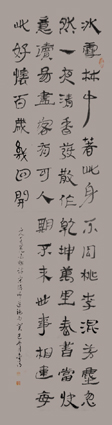 冰雪林中著此身不同桃李混芳塵忽
然一夜清香發散作乾坤萬里春書當快
意讀易盡客有可人期不來世事相違每
此好懷百歲幾回開